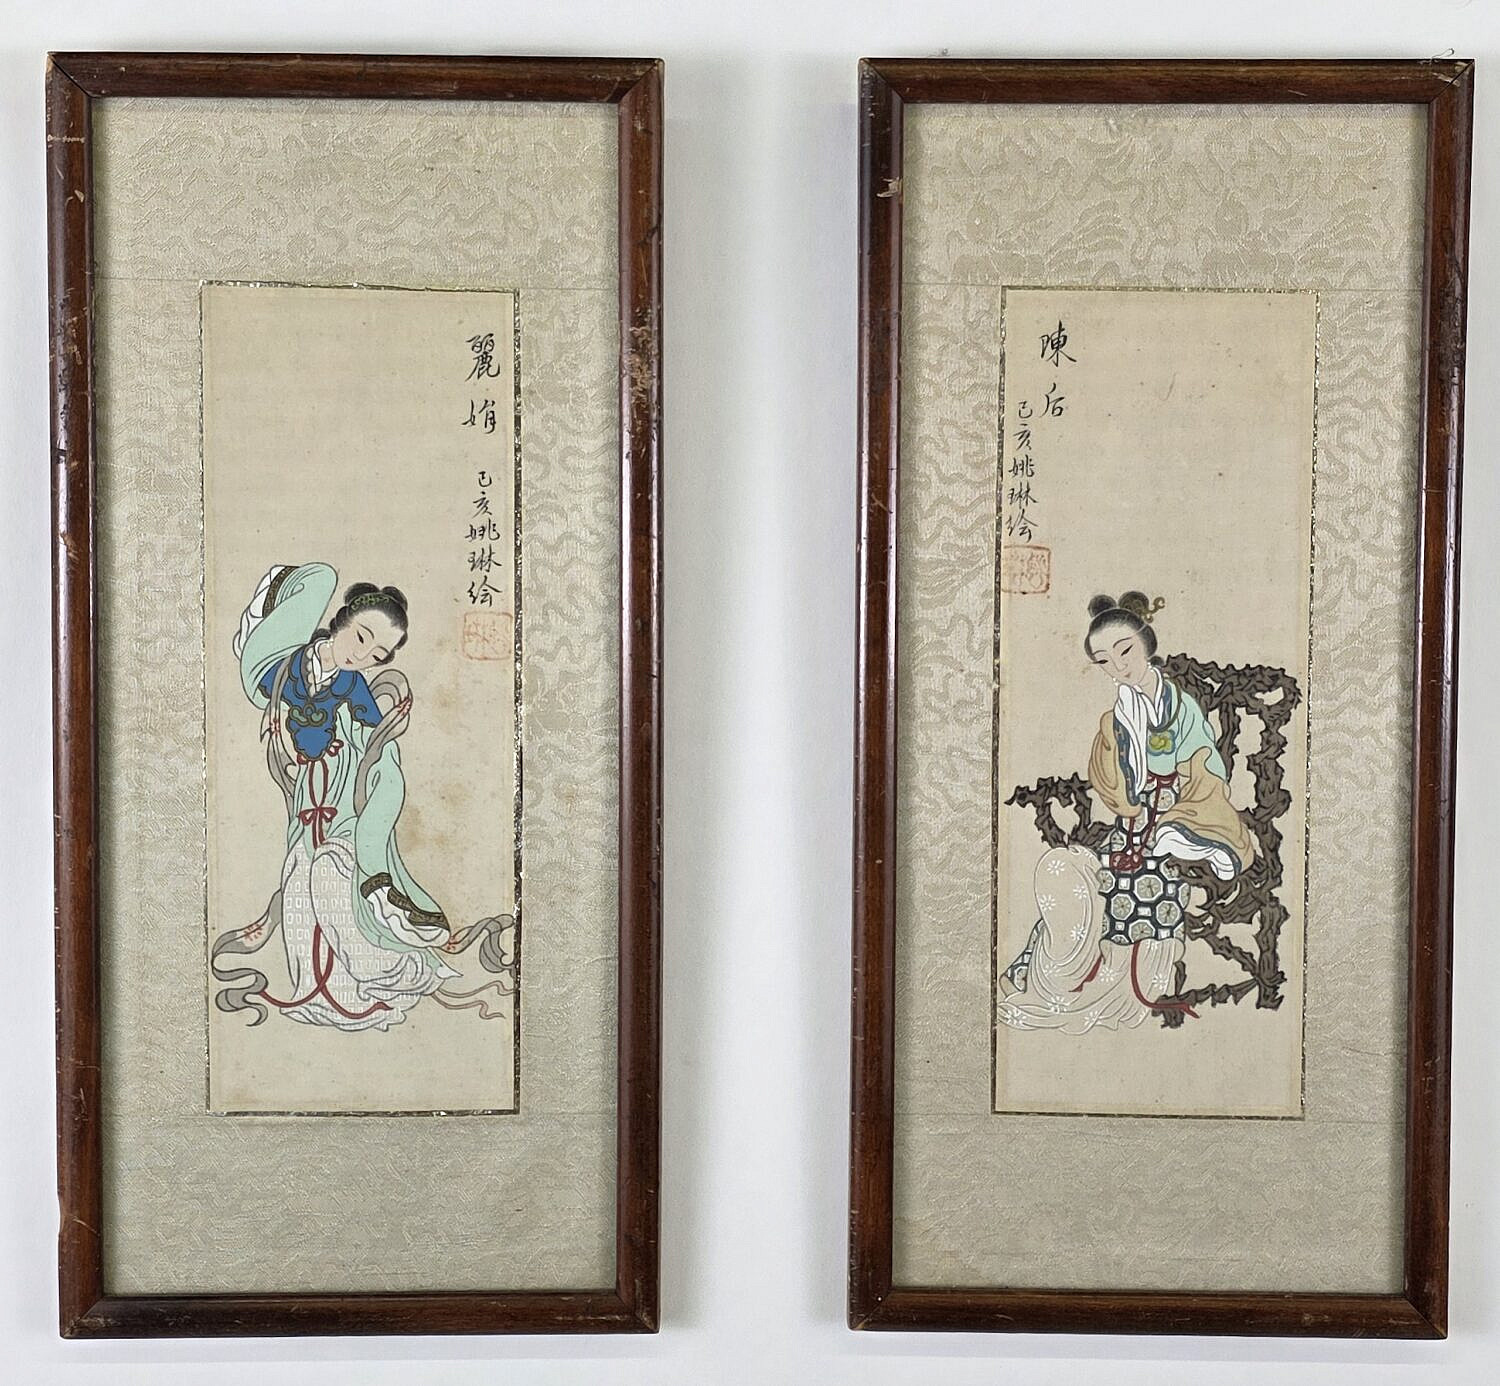 麗娟
己亥姚琳绘
陳后
己亥姚琳绘